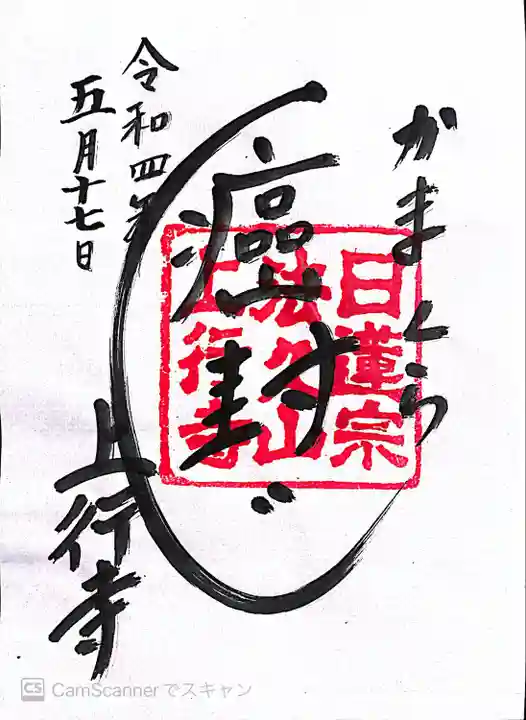 かまくら
癌封じ
日蓮宗
法久山
上行寺
令和四年
五月十七日
上行寺
CS CamScannerでスキャン